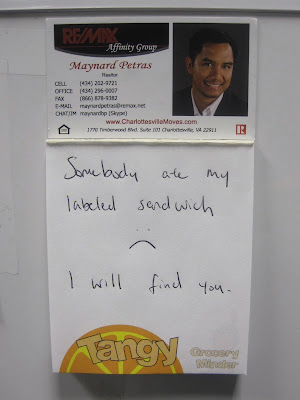 RE/MAX
Affinity Group
Maynard Petras
Realtor
CELL (434) 202-9721
OFFICE (434) 296-0007
FAX (866) 878-9382
E-MAIL maynardpetras@remax.net
CHAT/IM maynardbp (Skype)
www.CharlottesvilleMoves.com
1770 Timberwood Blvd. Suite 101 Charlottesville, VA 22911
Somebody ate my
labeled sandwich
I will find you.
Tangy
Grocery
Minder